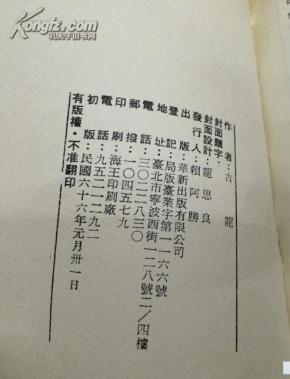 作者：古龍
封面題字：
封面設計：龍思良
發行人：賴阿勝
出版：華新出版有限公司
登記：局版臺業字第一一六六號
地址：臺北市寧波西街一二八號二/四樓
電話：三〇二二八三〇
郵撥：一〇四五七九
印刷：海王印刷廠
電話：九五二一二九二
初版：民國六十六年元月卅一日
有版權·不准翻印
孔夫子旧书网